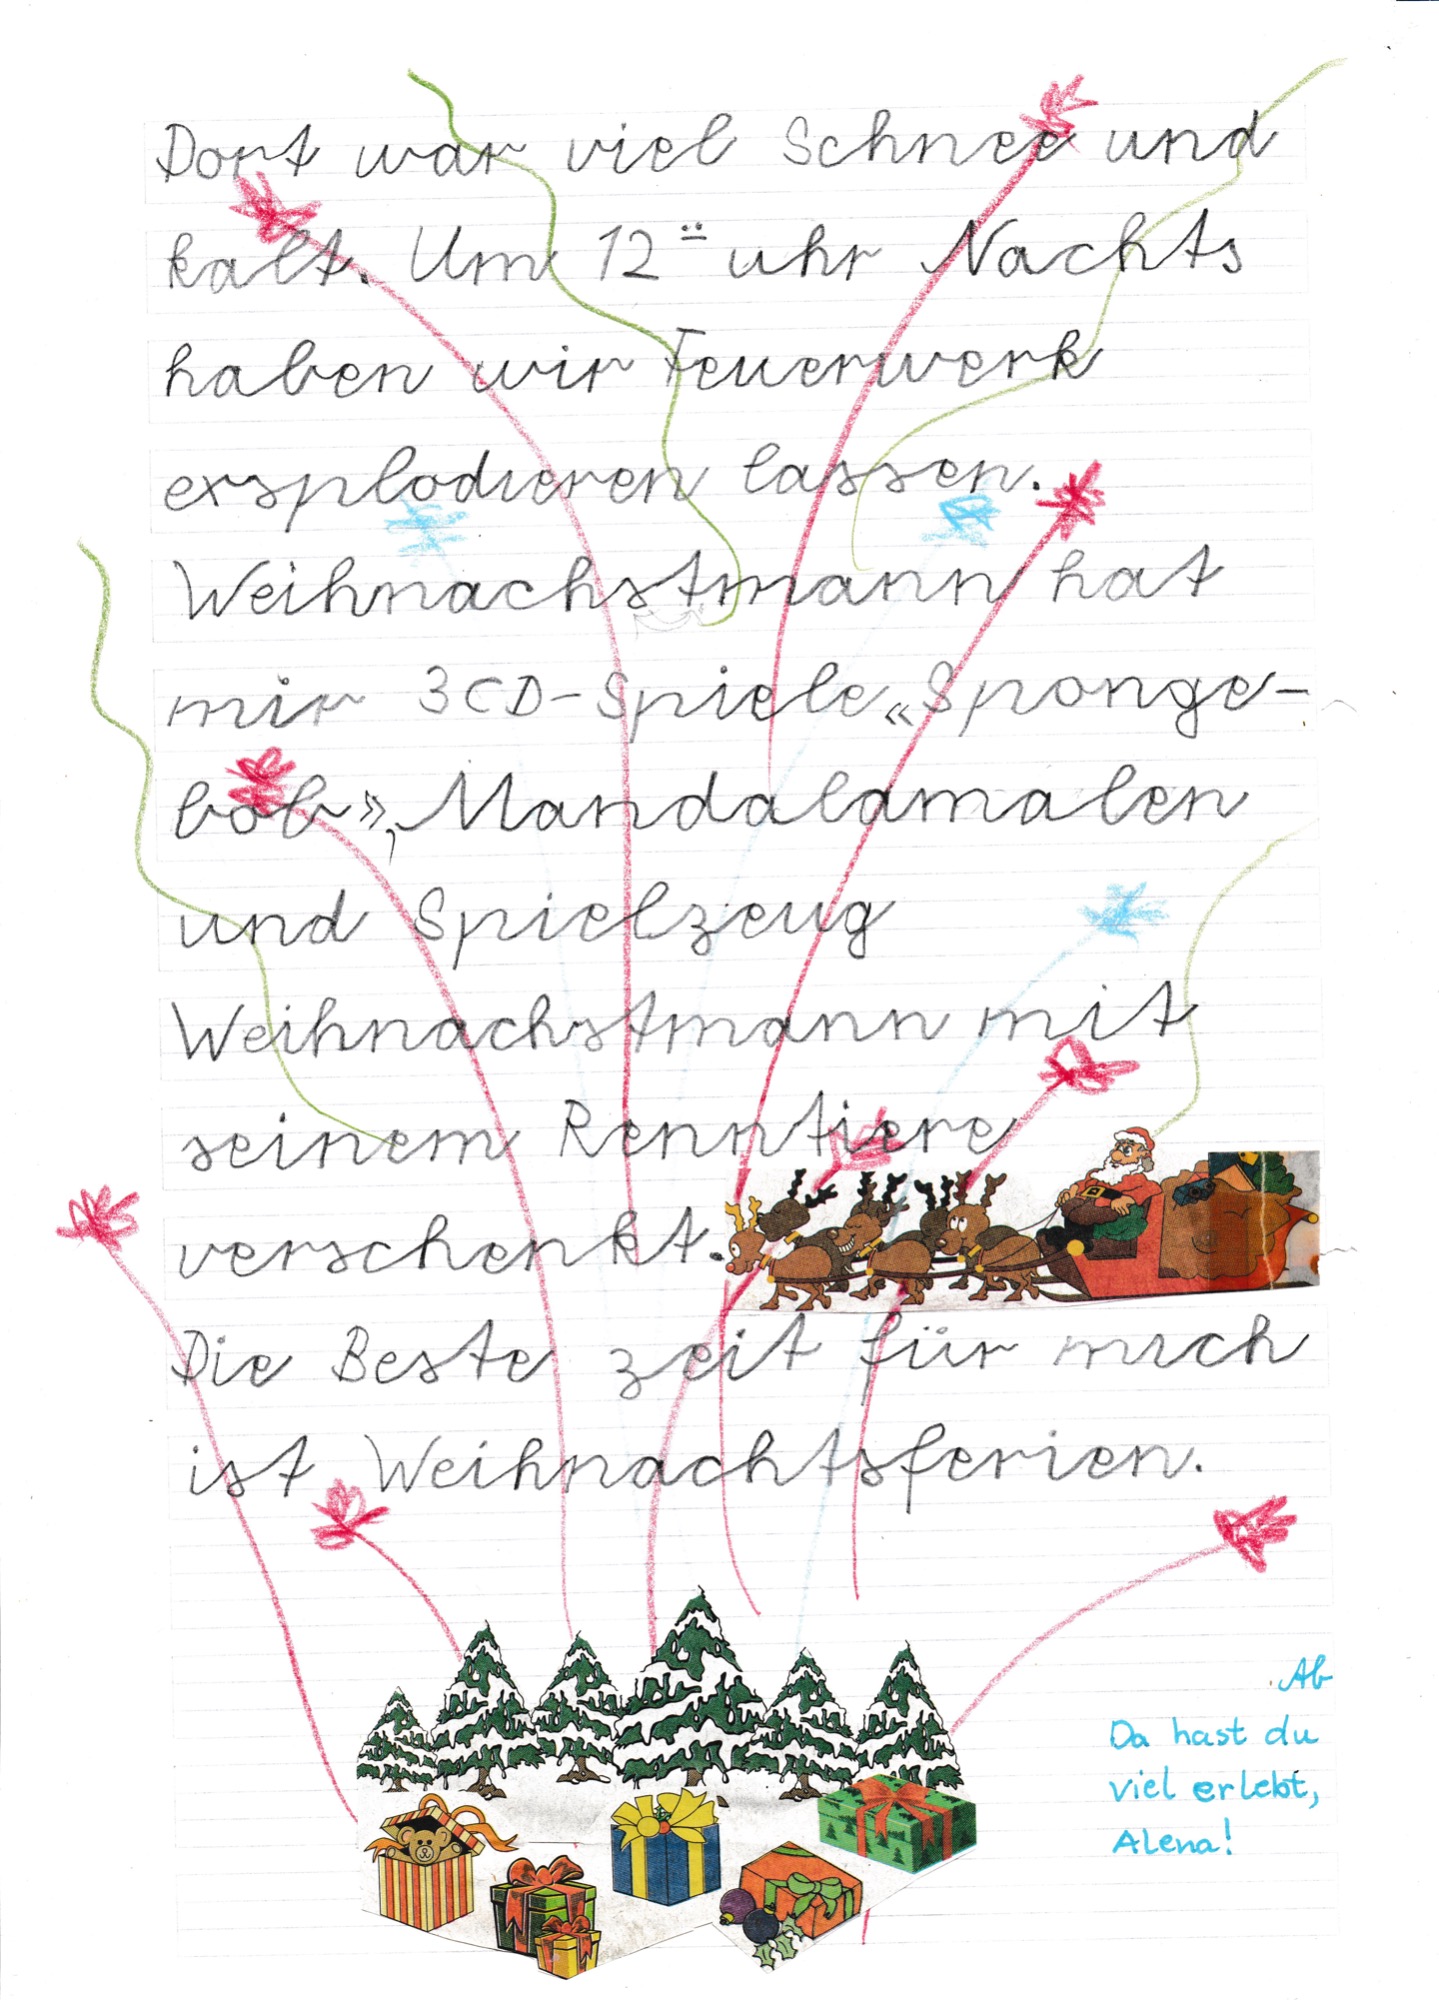 Dort war viel Schnee und
kalt. Um 12 ⸚ uhr Nachts
haben wir Feuerwerk
exsplodieren lassen.
Weihnachstmann hat
mir 3CD-Spiele «Sponge-
bob», Mandalamalen
und Spielzeug
Weihnachstmann mit
seinem Renntiere
verschenkt.
Die Beste zeit für mich
ist Weihnachtsferien.
Ab
Da hast du
viel erlebt,
Alena!